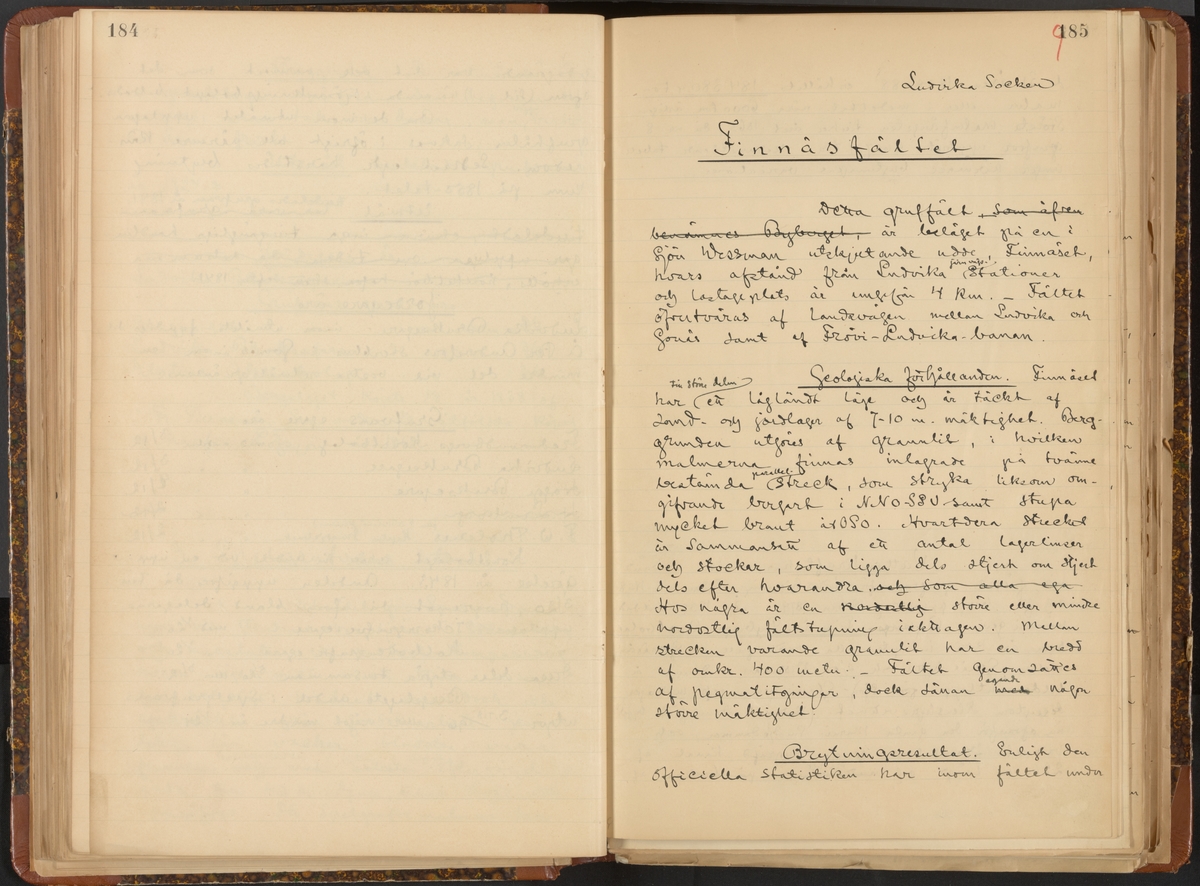 184
185
Ludvika Socken
Finnäsfältet
Detta gruffält, som äfven
benämnes Byberget, är beläget på en i
Sjön Wessman utskjutande udde, Finnäset,
hvars afstånd från Ludvika Stationer
och lastageplats är ungefär 4 km. – Fältet
öfvertväras af landsvägen mellan Ludvika och
Gonäs samt af Frövi-Ludvika-banan.
Geologiska förhållanden. Finnäset
till större delen
har ett lågländt läge och är täckt af
Sand- och jordlager af 7-10 m. mäktighet. Berg-
grunden utgöres af granulit, i hvilken
malmerna finnas inlagrade på tvänne
parallel
bestämda streck, som stryka liksom om-
gifvande bergart i N.NO-SSV samt stupa
mycket brant åt OSO. Hvartdera strecket
är sammansatt af ett antal lagerlinser
och stockar, som ligga dels stjert om stjert
dels efter hvarandra och som alla ega
Hos några är en nordostlig större eller mindre
nordostlig fältstupning iakttagen. Mellan
strecken varande granulit har en bredd
af omkr. 400 meter. – Fältet genomsättes
af pegmatitgångar, dock sådan med någon
egande
större mäktighet.
Brytningsresultat. Enligt den
officiella statistiken har inom fältet under